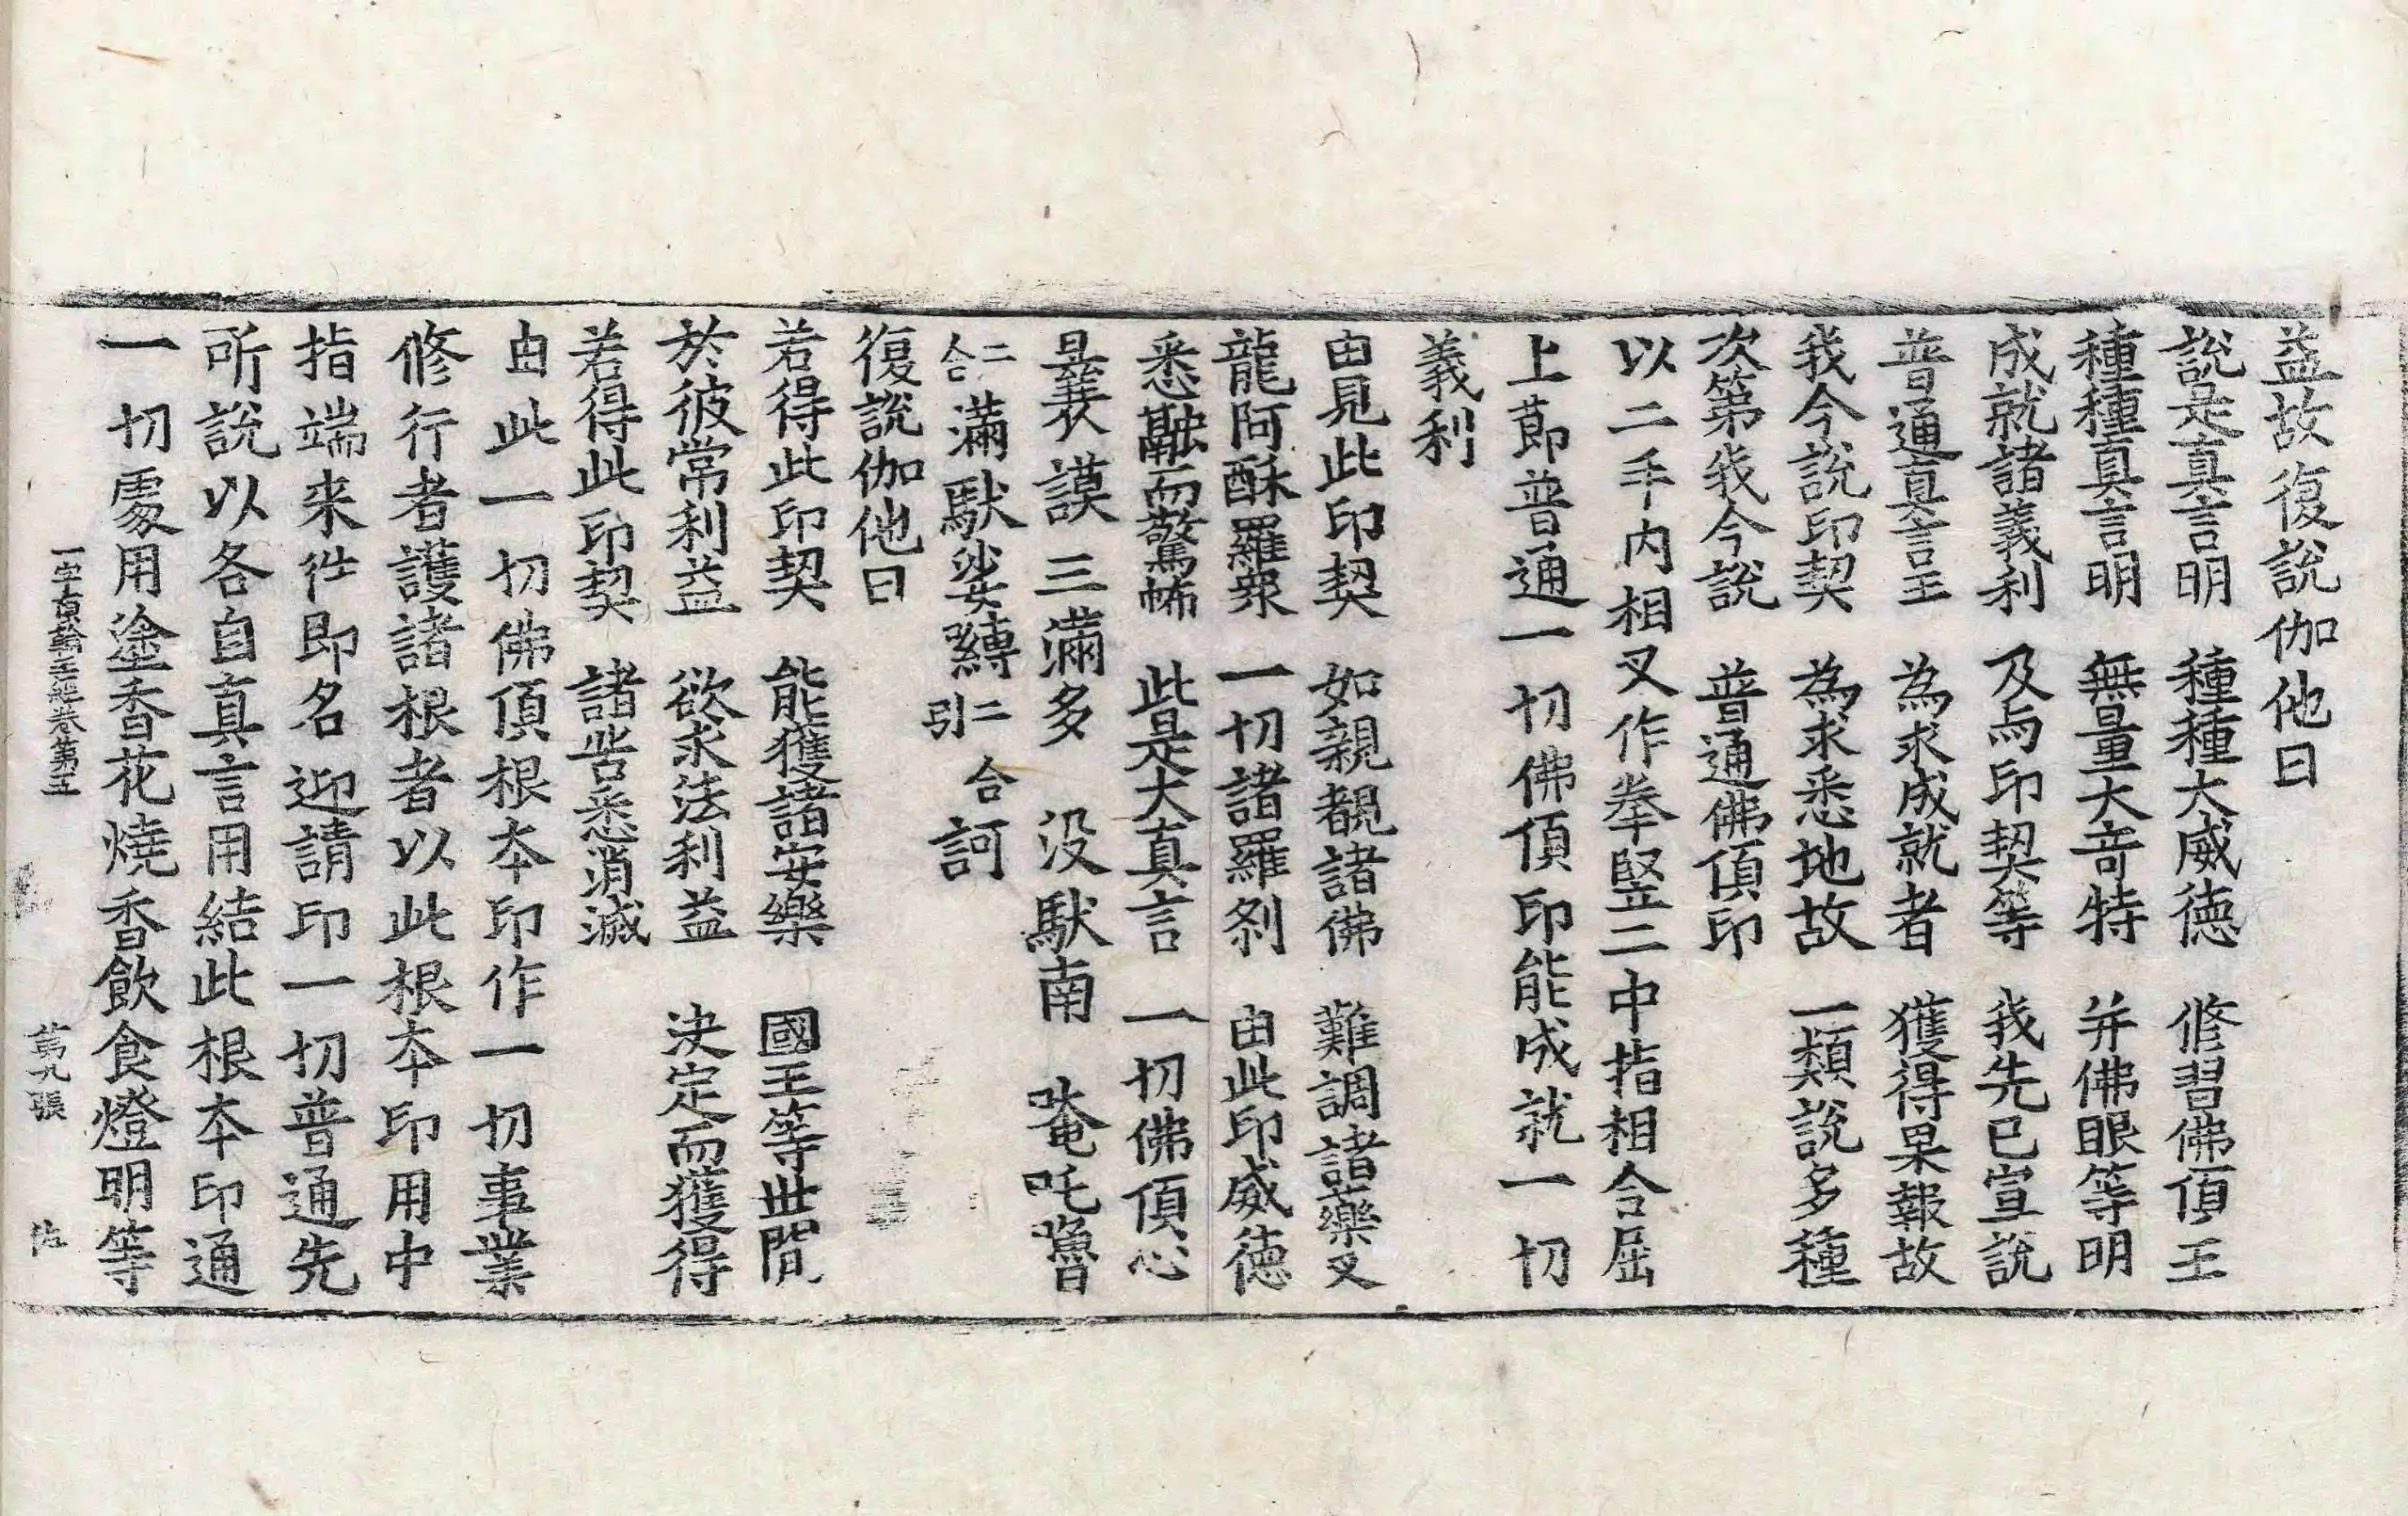 益故復說伽他曰
說是真言明　種種大威德　修習佛頂王
種種真言明　無量大奇特　并佛眼等明
成就諸義利　及与印契等　我先已宣說
普通真言王　為求成就者　獲得果報故
我今說印契　為求悉地故　一類說多種
次第我今說　普通佛頂印
以二手內相叉作拳竪二中指相合屈
上莭普通一切佛頂印能成就一切
義利
由見此印契　如親覩諸佛　難調諸藥叉
龍阿酥羅衆　一切諸羅剎　由此印威德
悉皆而驚怖　此是大真言　一切佛頂心
曩莫三滿多　没馱南　唵吒嚕
二合滿馱娑嚩二合引訶
復說伽他曰
若得此印契　能獲諸安樂　國王等世間
於彼常利益　欲求法利益　決定而獲得
若得此印契　諸呰悉消滅
由此一切佛頂根夲印作一切事業
修行者護諸根者以此根夲印用中
指端来徃即名迎請印一切普通先
所說以各自真言用結此根夲印通
一切處用塗香花燒香飲食燈明等
一字頂輪王經卷第五　第九張